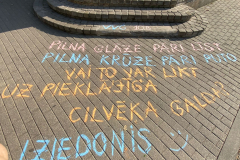 PILNA GLĀZE PĀRI LĪST
PILNA KRŪZE PĀRI
VAI TO VAR LIKT
UZ PIEKLĀJĪGA
CILVĒKA GALDA?
IZIEDONIS :)